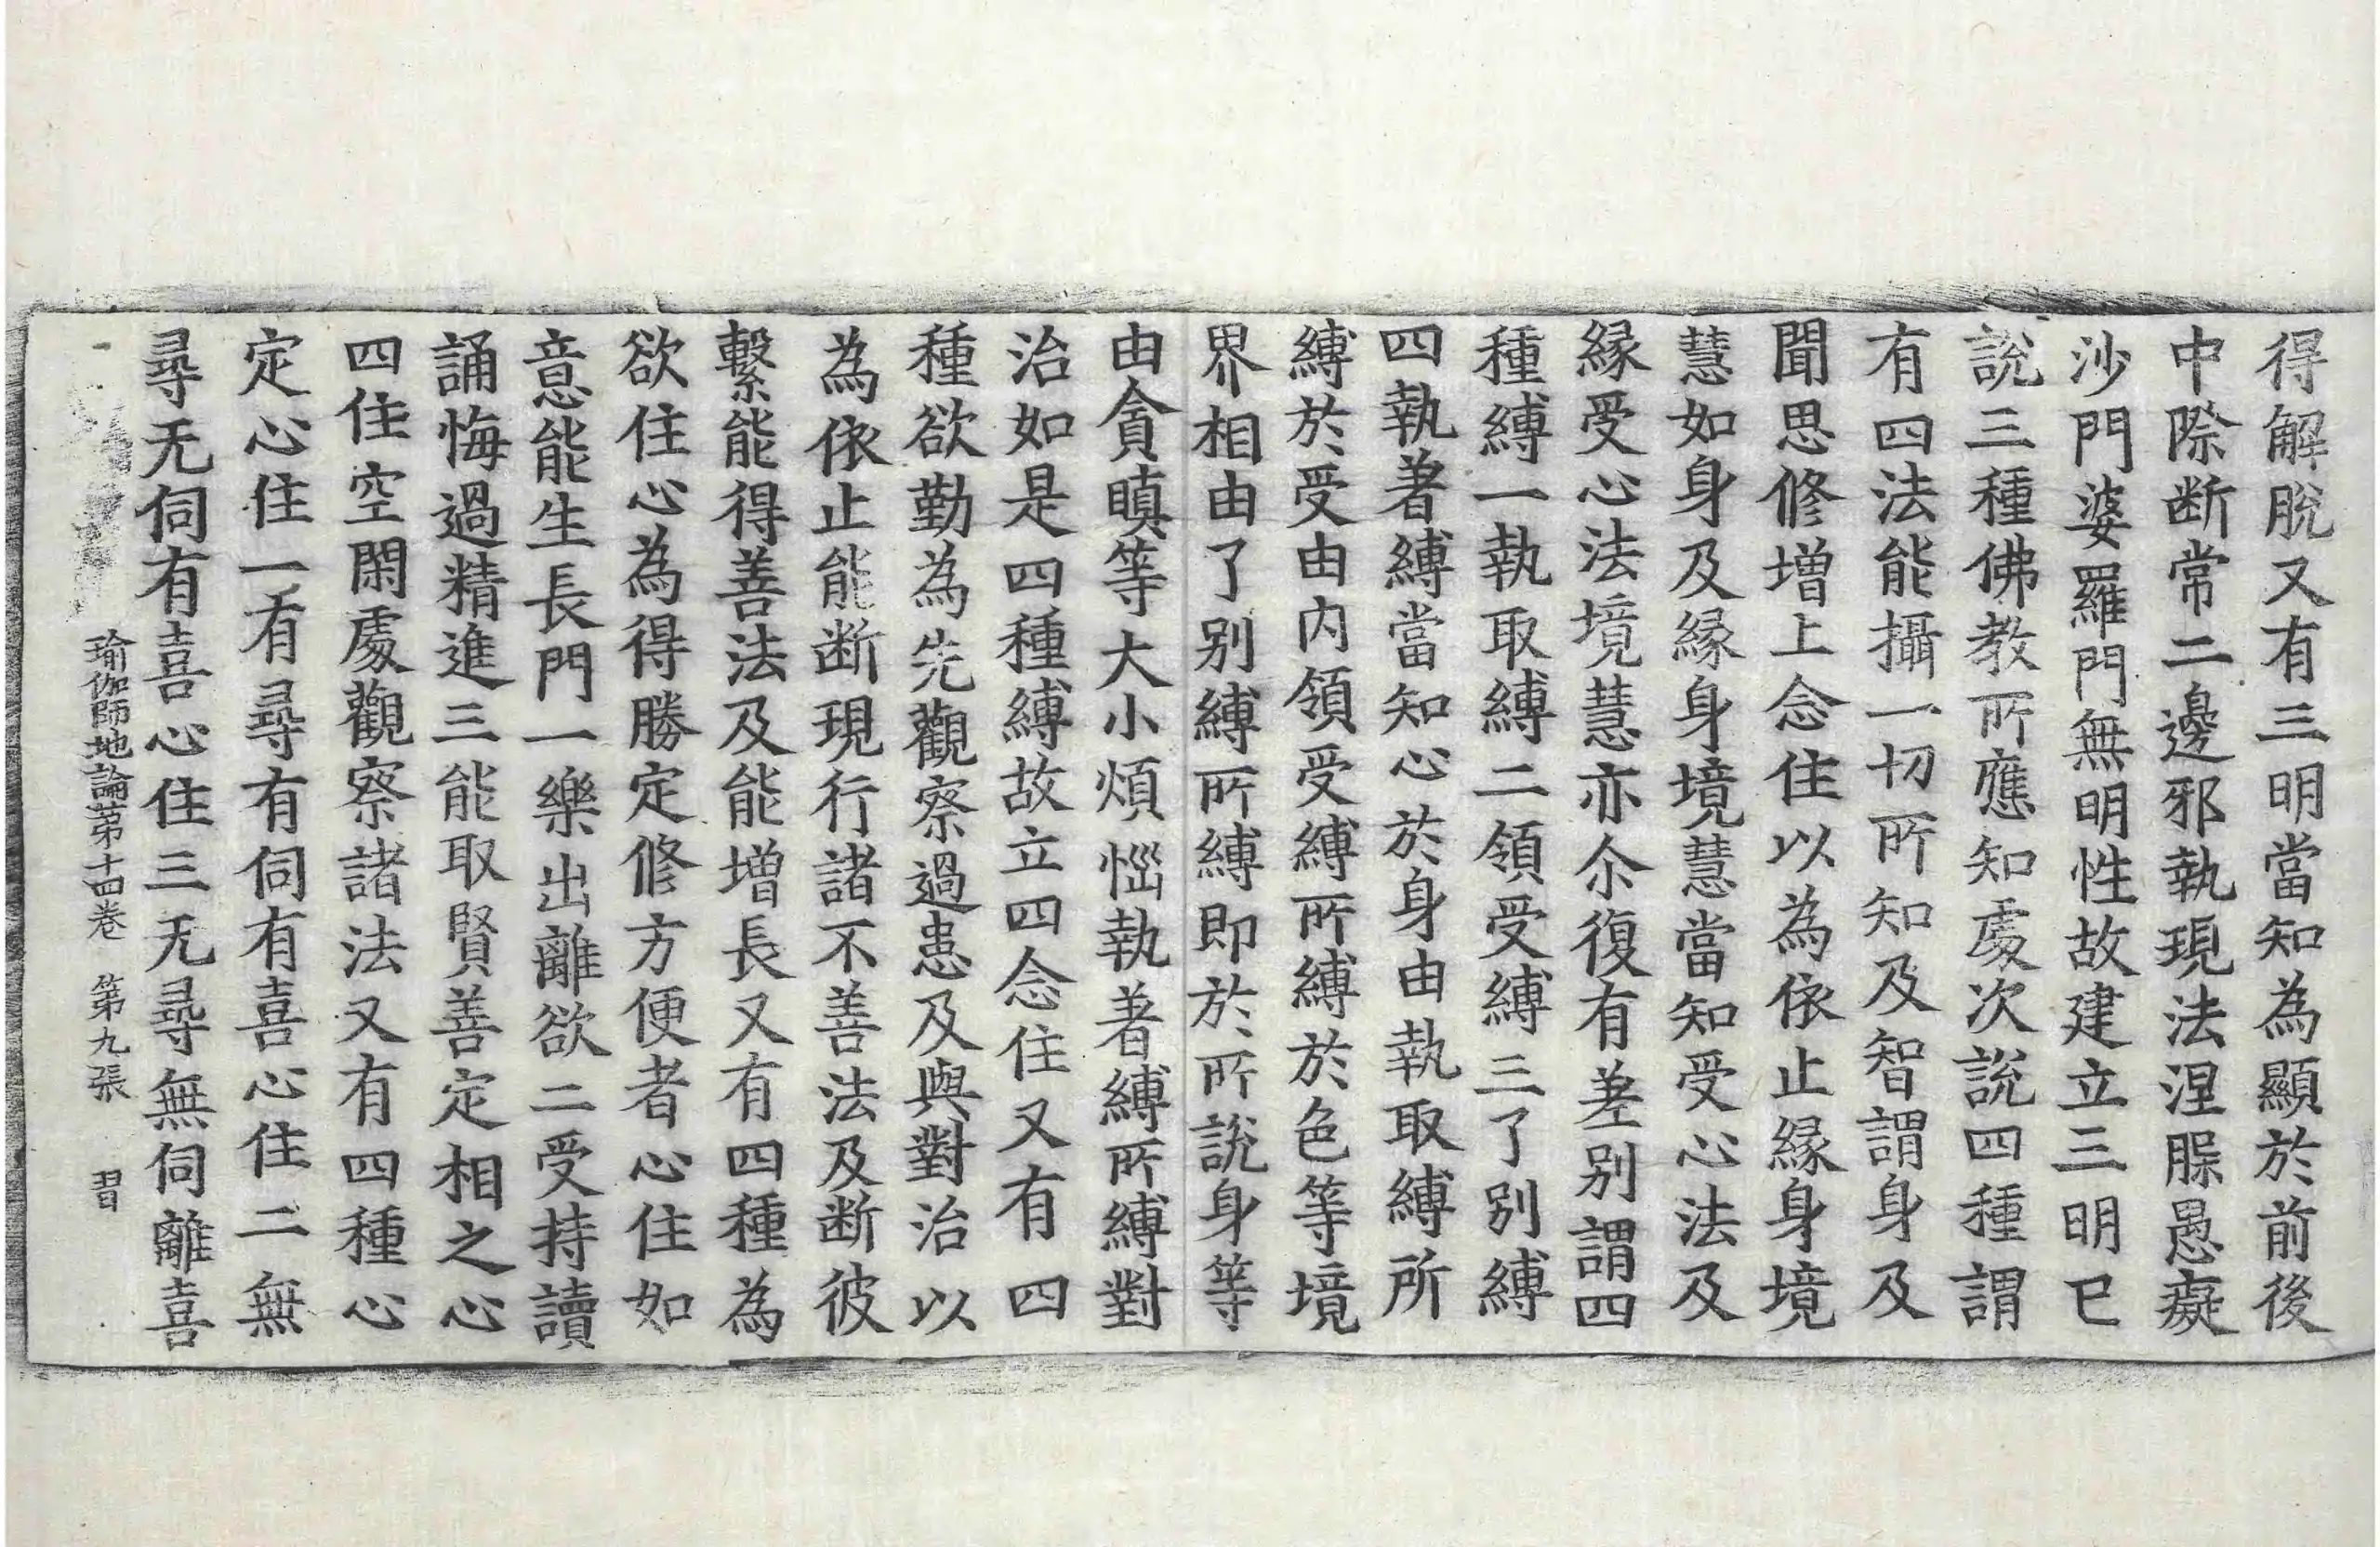 得解脫又有三明當知為顯於前後
中際断常二邊邪執現法涅脲愚癡
沙門婆羅門無明性故建立三明已
說三種佛教所應知處次說四種謂
有四法能攝一切所知及智謂身及
聞思修增上念住以為依止縁身境
慧如身及縁身境慧當知受心法及
縁受心法境慧亦尒復有差别謂四
種縛一執取縛二領受縛三了別縛
四執著縛當知心於身由執取縛所
縛於受由內領受縛所縛於色等境
界相由了别縛所縛即於所說身等
由貪瞋等大小煩惱執著縛所縛對
治如是四種縛故立四念住又有四
種欲勤為先觀察過患及與對治以
為依止能断現行諸不善法及断彼
繫能得善法及能增長又有四種為
欲住心為得勝定修方便者心住如
意能生長門一樂出離欲二受持讀
誦悔過精進三能取賢善定相之心
四住空閑處觀察諸法又有四種心
定心住一有尋有伺有喜心住二無
尋无伺有喜心住三无尋無伺離喜
瑜伽師地論第十四卷 第九張 習